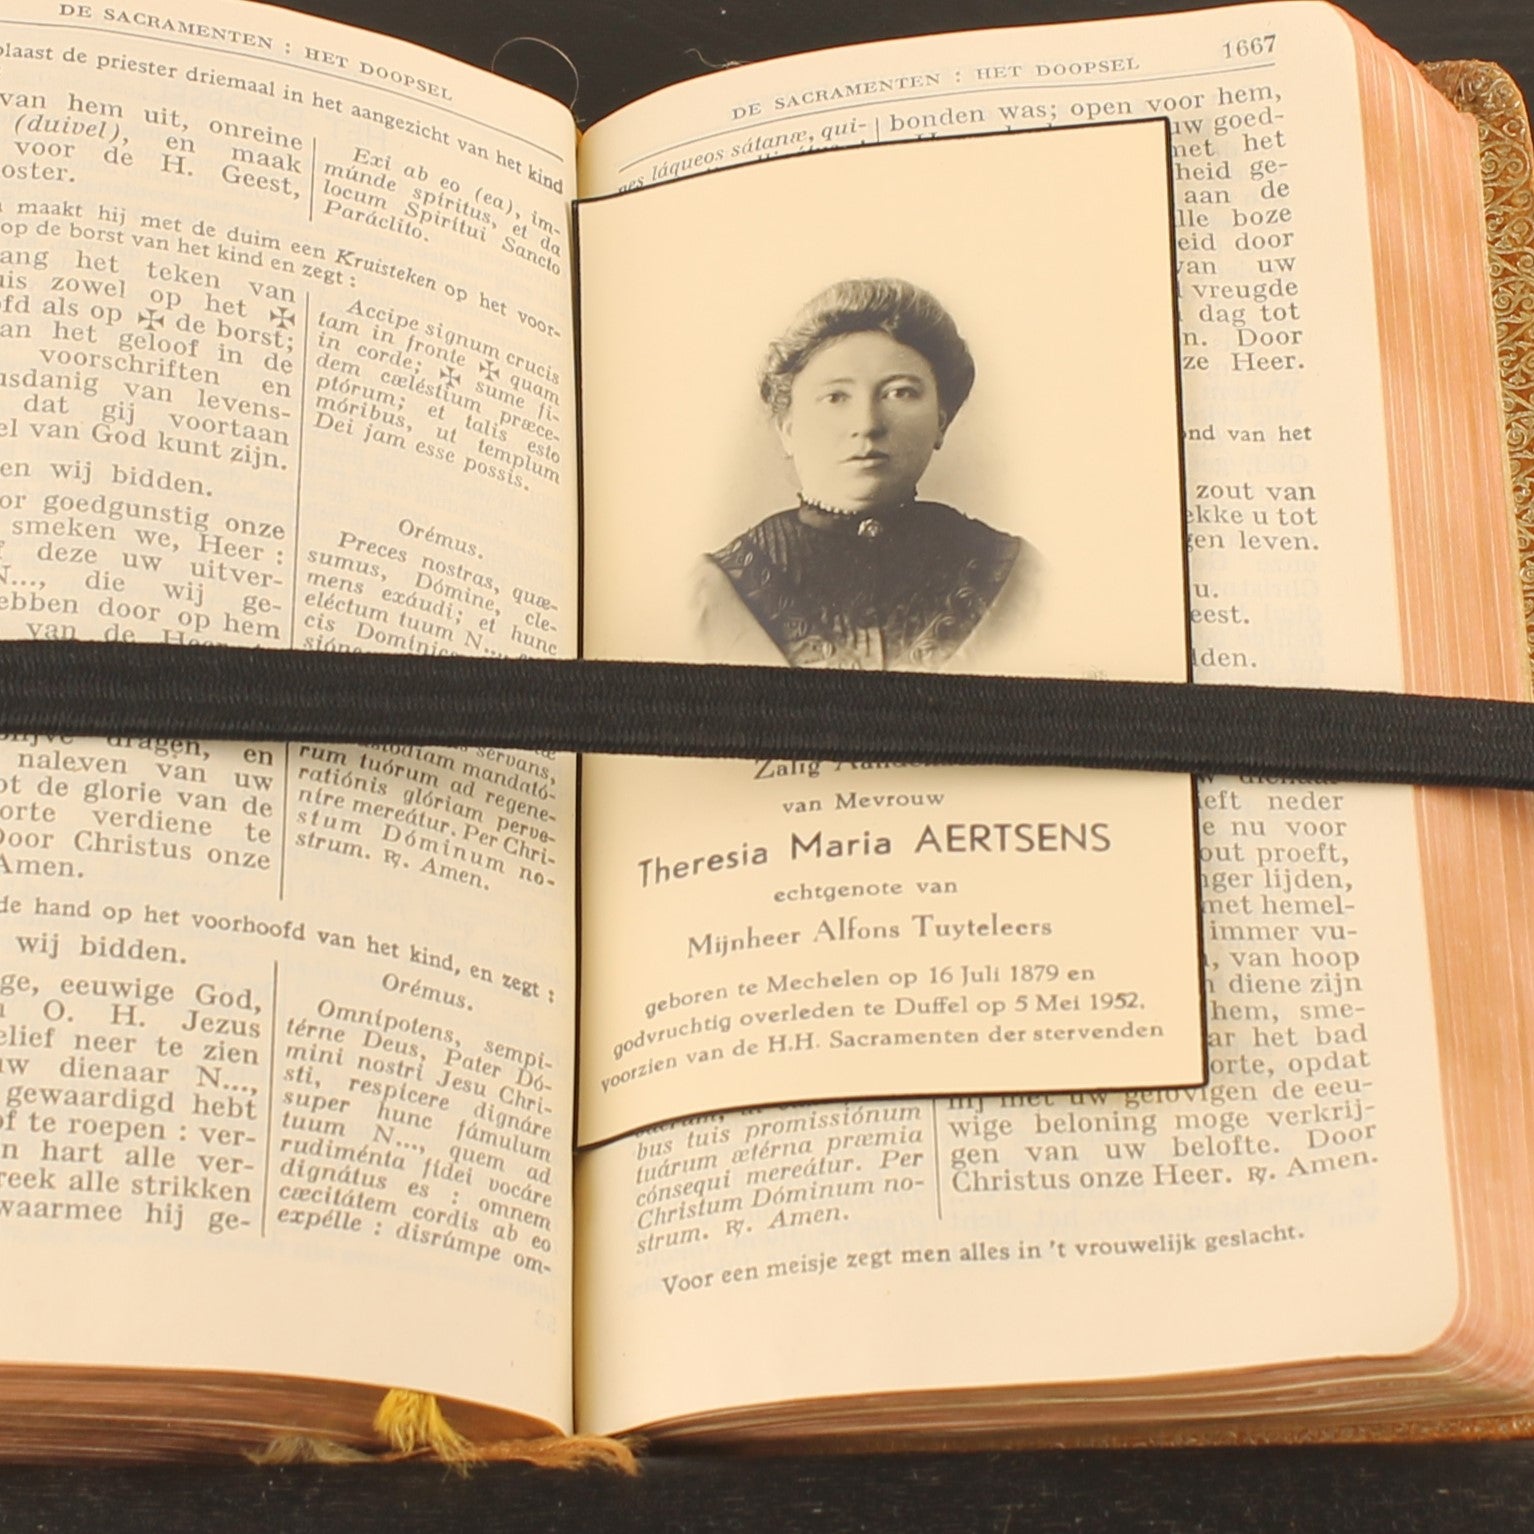 DE SACRAMENTEN : HET DOOPSEL
plaast de priester driemaal in het aangezicht van het kind
van hem uit, onreine
(duivel), en maak
voor de H. Geest,
oster.
Exi ab eo (ea), im-
múnde spíritus, et da
locum Spirítui Sancto
Paráclito.
maakt hij met de duim een Kruisteken op het voor-
op de borst van het kind en zegt :
ang het teken van
uis zowel op het ✠
ofd als op ✠ de borst;
an het geloof in de
voorschriften en
usdanig van levens-
dat gij voortaan
el van God kunt zijn.
Accipe signum crucis
tam in fronte ✠ quam
in corde; ✠ sume fi-
dem cæléstium præce-
ptórum; et talis esto
móribus, ut templum
Dei jam esse possis.
en wij bidden.
or goedgunstig onze
smeken we, Heer :
f deze uw uitver-
N..., die wij ge-
ebben door op hem
van de
Orémus.
Preces nostras, quæ-
sumus, Dómine, cle-
mens exáudi; et hunc
eléctum tuum N...,
cis Domínicæ
dragen, en
naleven van uw
ot de glorie van de
orte verdiene te
Door Christus onze
Amen.
servans,
custodiam mandató-
rum tuórum ad regene-
ratiónis glóriam perve-
níre mereátur. Per Chri-
stum Dóminum no-
strum. ℟. Amen.
de hand op het voorhoofd van het kind, en zegt :
wij bidden.
ge, eeuwige God,
O. H. Jezus
elief neer te zien
uw dienaar N...,
gewaardigd hebt
of te roepen : ver-
n hart alle ver-
reek alle strikken
waarmee hij ge-
Orémus.
Omnípotens, sempi-
térne Deus, Pater Dó-
mini nostri Jesu Chri-
sti, respícere dignáre
super hunc fámulum
tuum N..., quem ad
rudiménta fídei vocáre
dignátus es : omnem
cæcitátem cordis ab eo
expélle : disrúmpe om-
DE SACRAMENTEN : HET DOOPSEL 1667
nes láqueos sátanæ, qui-
bonden was; open voor hem,
uw goed-
met het
heid ge-
aan de
lle boze
eid door
van uw
vreugde
dag tot
n. Door
ze Heer.
ond van het
zout van
ekke u tot
gen leven.
u.
eest.
dden.
Zalig
van Mevrouw
Theresia Maria AERTSENS
echtgenote van
Mijnheer Alfons Tuyteleers
geboren te Mechelen op 16 Juli 1879 en
godvruchtig overleden te Duffel op 5 Mei 1952,
voorzien van de H.H. Sacramenten der stervenden
eft neder
e nu voor
out proeft,
nger lijden,
met hemel-
immer vu-
, van hoop
diene zijn
hem, sme-
ar het bad
orte, opdat
hij met uw gelovigen de eeu-
wige beloning moge verkrij-
gen van uw belofte. Door
Christus onze Heer. ℟. Amen.
bus tuis promissiónum
tuárum ætérna præmia
cónsequi mereátur. Per
Christum Dóminum no-
strum. ℟. Amen.
Voor een meisje zegt men alles in 't vrouwelijk geslacht.